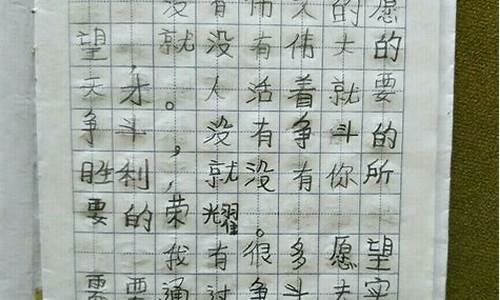 没有伟大的愿
望,就没有伟大的
天才。人活着就要
争斗,没有争斗的
胜利,就没有你所
要的荣耀。
我有很多愿望
需要通过争斗去实